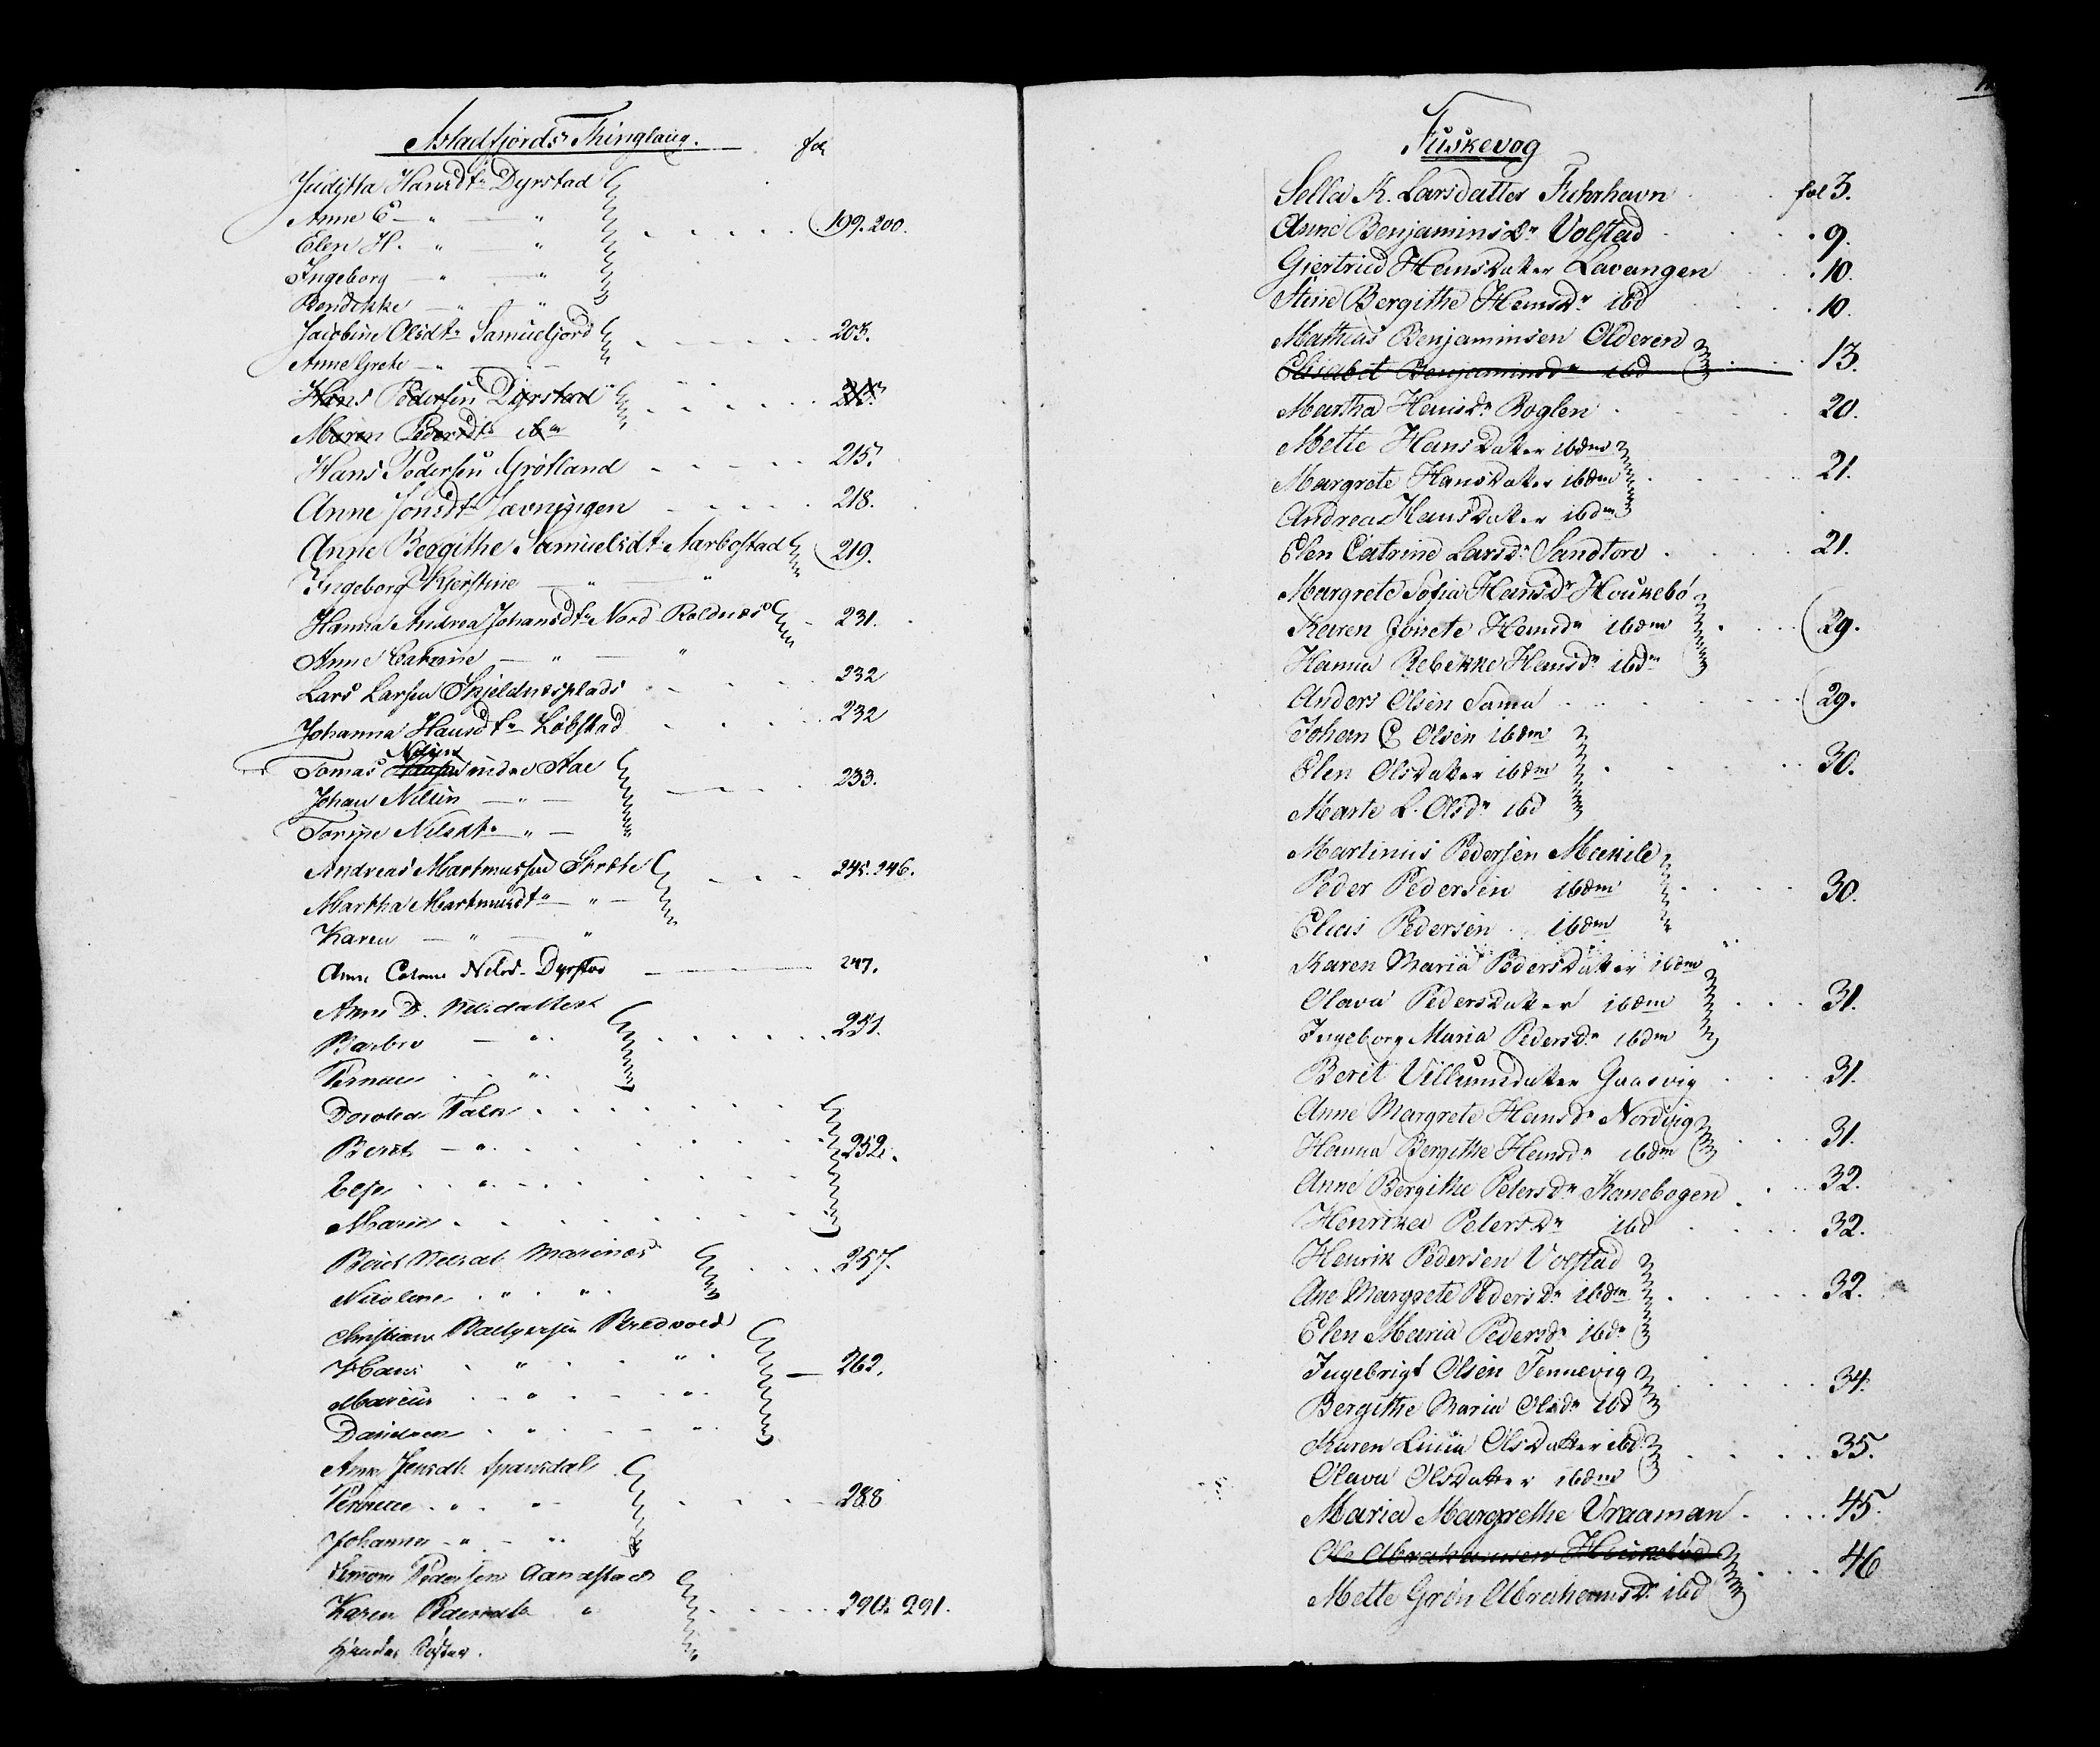 Astadfjords Thinglaug. fol
Juditta Hansdtr Dyrstad
Anne E — " — "
Elen H. " "
Ingeborg — " — "
Bendikke — " — "
199. 200.
Jacobine Olsdtr Samuelfjord
203.
Anne Grete — " —
Hans Pedersen Dyrstad
213.
Maren Pedersdtr ibm
Hans Pedersen Grötland 215.
Anne Jonsdtr Lævningen 218.
Anne Bergithe Samuelsdtr Aarbostad 219.
Ingeborg Kjerstine — " — "
Hanna Andrea Johansdtr Nord Roldnæs 231.
Anne Catrine — " — "
Lars Larsen Skjeldnesplads 232
Johanna Hansdtr Löbstad 232
Nilsen
Tomas indre Aae
Johan Nilsen — " —
233.
Torine Nilsdtr " —
Andreas Martinussen Skrøte 245. 246.
Martha Martinusdtr — " —
Karen — " — "
Anne Catrine Nilsd. Dyrstad 247.
Anne D. Nilsdatter
Barbro — "
251.
Pernau "
Dorothea Falk
Berit — "
252.
Else "
Maria
Berit Nilsdt. Marinæs
257.
Nicoline " "
Christian Balzersen Bredvold
Hans " "
262.
Marcus " "
Danidsen " "
Anne Jensdtr Spansdal
Pernille " "
288
Johanna " "
Simon Pedersen Aandstad
Karen Pedersdtr "
290. 291.
Fuskevog
Sella K. Larsdatter Fuhrhavn fol 3.
Anne Benjaminsdr Volstad 9.
Giertrud Hansdatter Lavangen 10.
Stine Bergithe Hansdr ibd 10.
Mathias Benjaminsen Olderen
13.
Elisabet Benjaminsdr ibd
Martha Hansdr Boglen 20.
Mette Hansdatter ibdm
Margrete Hansdatter ibdm 21.
Andrea Hansdatter ibdm
Elen Catrine Larsdr Sandtorv 21.
Margrete Sofia Hansdr Houkebö
Karen Jonete Hansdr ibdm 29.
Hanna Rebekke Hansdr ibdm
Anders Olsen Sama 29.
Johan C Olsen ibdm
Elen Olsdatter ibdm 30.
Marte L. Olsdr ibd
Martinus Pedersen Mækile
Peder Pedersen ibdm 30.
Elias Pedersen ibdm
Karen Maria Pedersdatter ibdm
Olava Pedersdatter ibdm 31.
Ingeborg Maria Pedersdr ibdm
Berit Villumsdatter Gaasvig 31.
Anne Margrete Hansdr Nordvig
31.
Hanna Bergithe Hansdr ibdm
Anne Bergithe Petersdr Kanebogen 32.
Henrika Petersdr ibd 32.
Henrik Pedersen Volstad
Ane Margrete Pedersdr ibdm 32.
Elen Maria Pedersdr ibdm
Ingebrigt Olsen Tennevig
34.
Bergithe Maria Olsdr ibd
Karen Lucia Olsdatter ibd
35.
Olava Olsdatter ibdm
Maria Margrethe Vraaman 45.
Ole Abrahamsen Houkebö
46
Mette Grön Abrahamsdr ibd